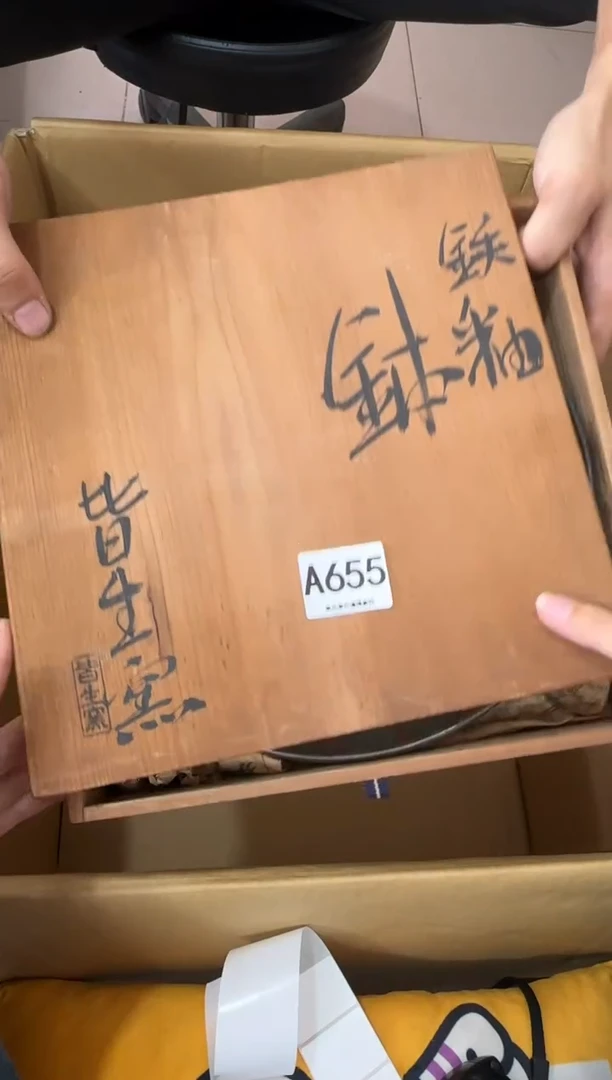 鉄釉
鉢
皆生窯
皆生窯
A655